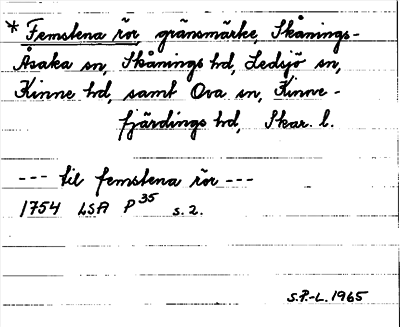 * Femstena rör, gränsmärke, Skånings-
Åsaka sn, Skånings hd, Ledsjö sn,
Kinne hd, samt Ova sn, Kinne-
fjärdings hd, Skar. l.
--- til femstena rör ---
1754 LSA P 35 s. 2.
S.P.-L. 1965